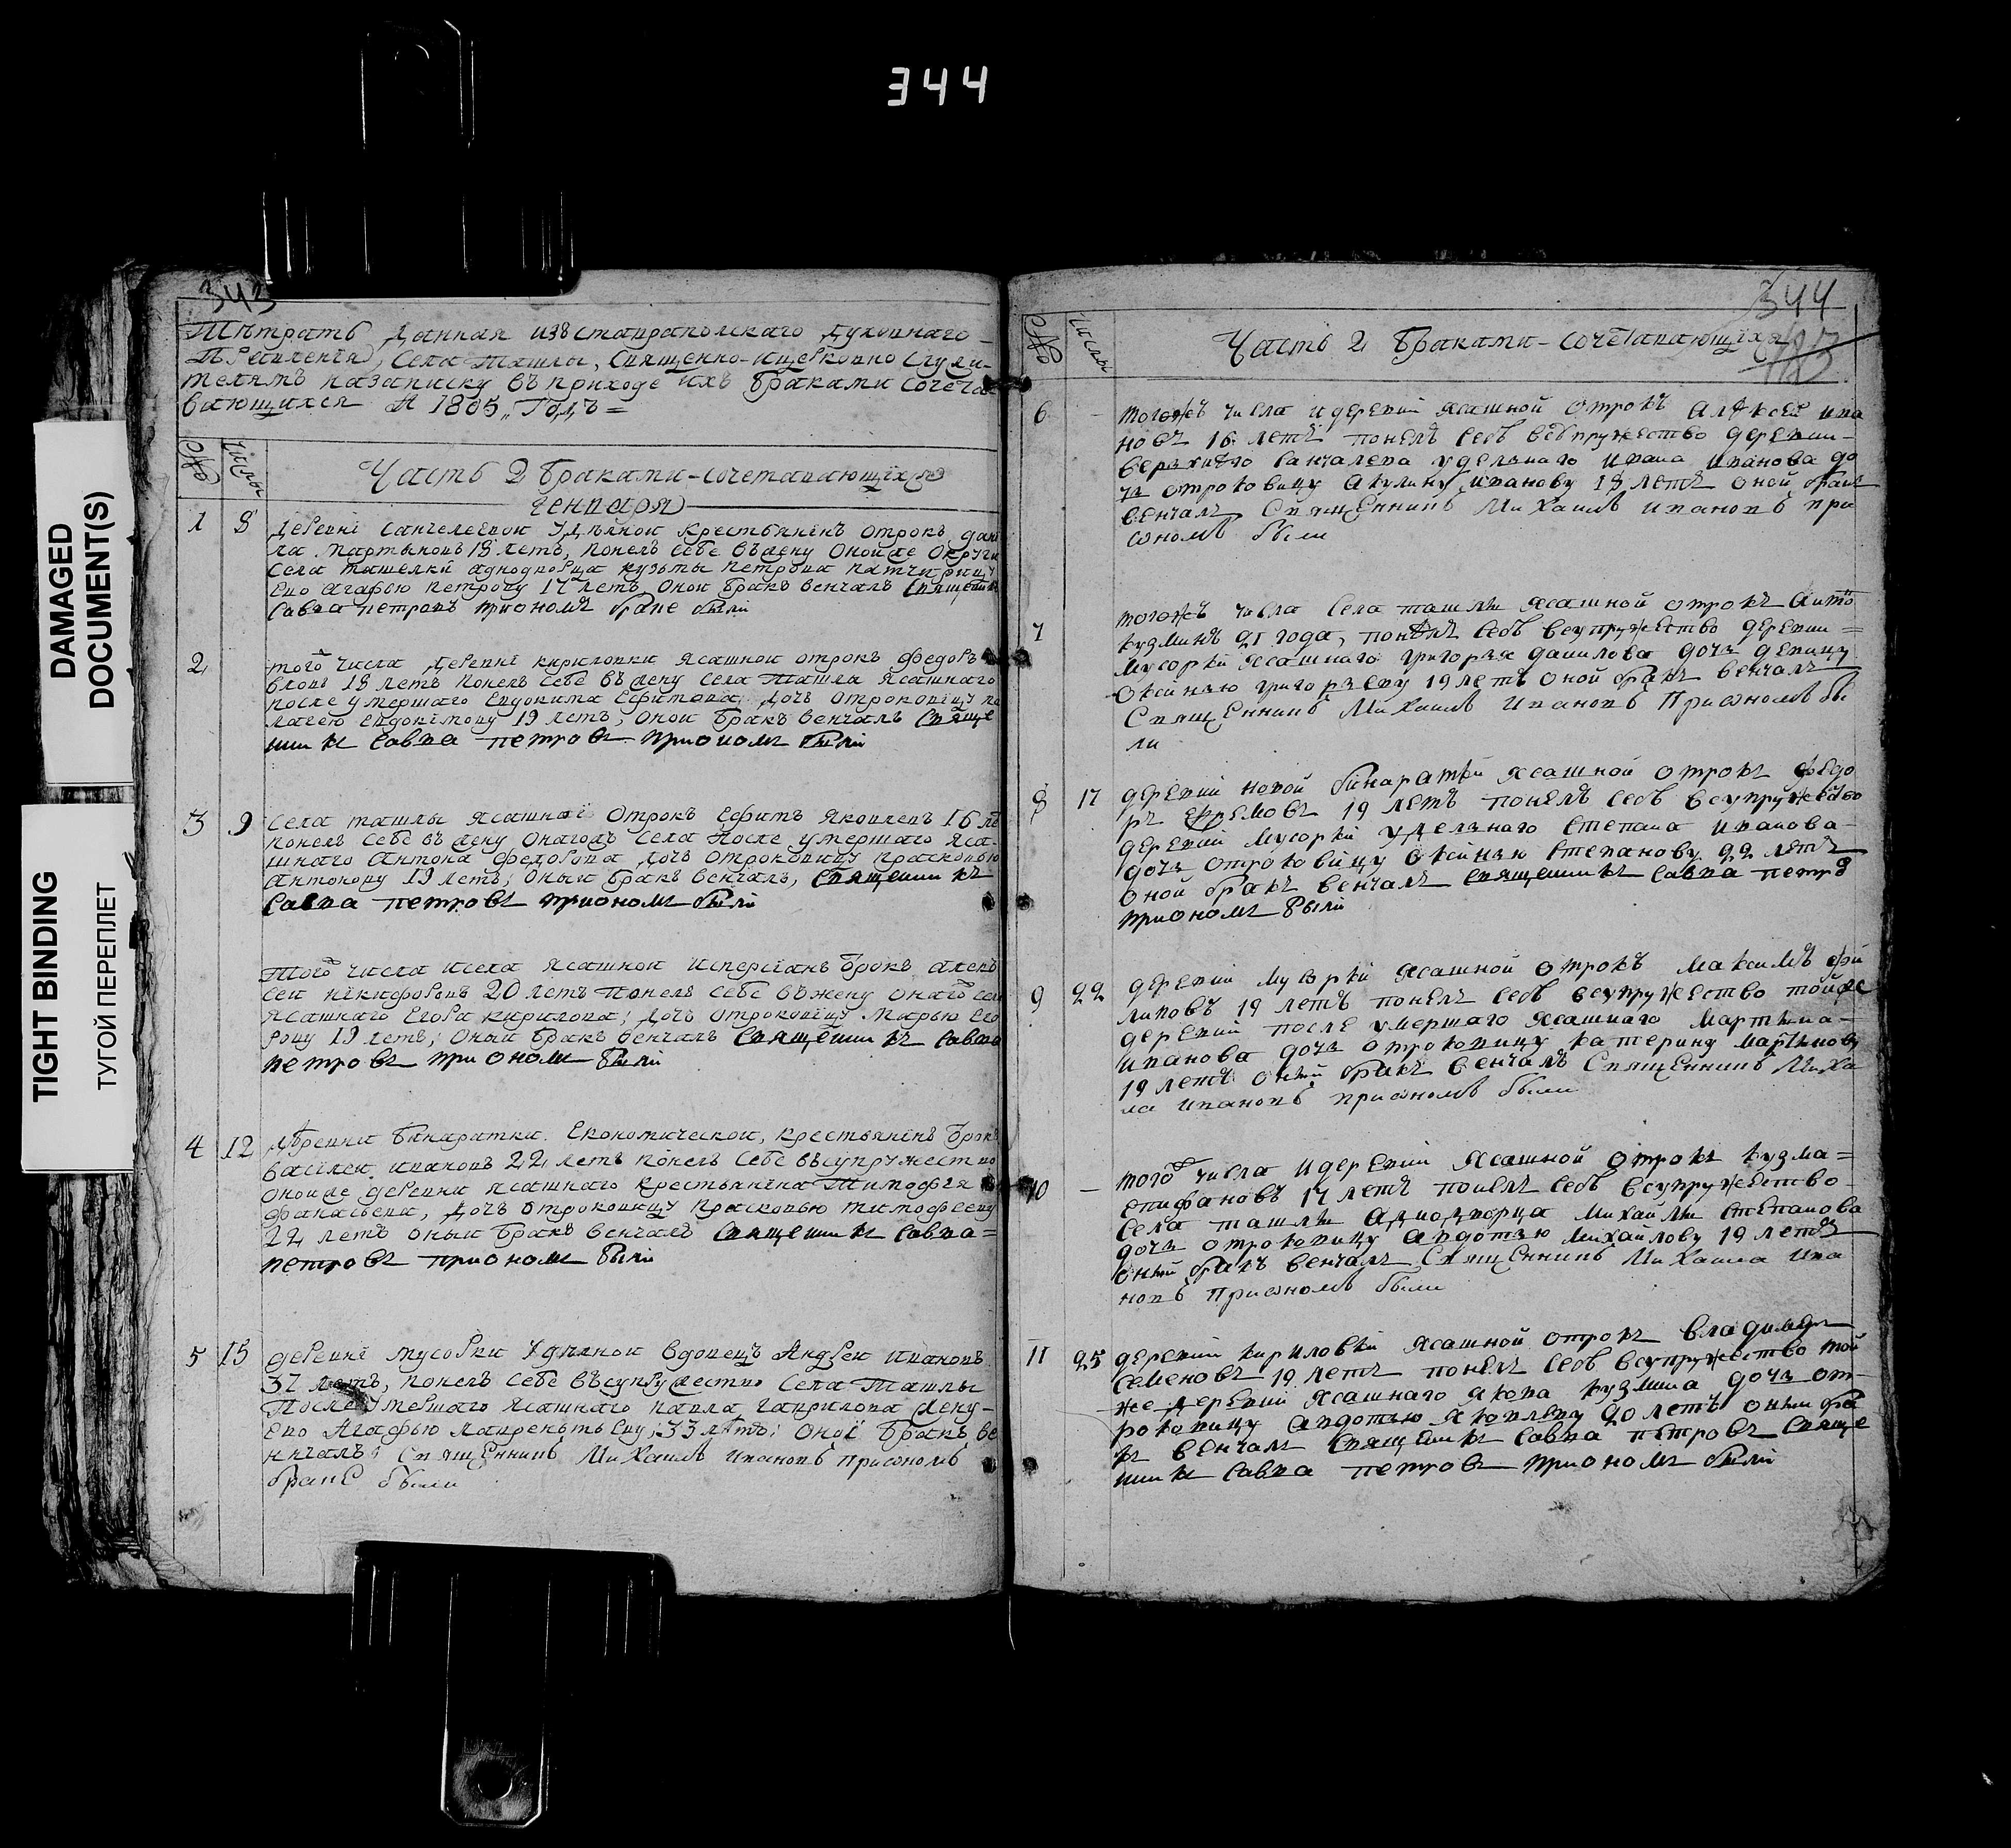 344
DAMAGED
DOCUMENT(S)
TIGHT BINDING
ТУГОЙ ПЕРЕПЛЕТ
343
Тѣтрать Данная изъ ставрапольскаго духовнаго
Правленія, Села Ташлы, Священно-ицерковно служи-
телямъ назаписку въ приходе ихъ браками сочета
вающихся А 1805„ Годъ =
№ Числы
Часть 2 браками-сочетавающихся
генваря
1 8 Деревни Сангелеевой Удѣлной крестьянинъ отрокъ дани
ла мартыновъ 18 летъ, понелъ себе въжену онойже округи
села ташелки аднодворца кузьмы петрова
агафью петрову 17 летъ оной бракъ венчалъ священник
Савва петровъ приономъ браке были
2 того числа деревни кириловки ясашной отрокъ федоръ
18 летъ понелъ себе въ жену села Ташла ясашнаго
после умершаго евдокима ефимова дочь отроковицу пе
лагею евдокимову 19 летъ, оной бракъ венчалъ свяще
нникъ Савва петровъ приономъ были
3 9 Села ташлы ясашной отрокъ ефимъ яковлевъ 16 ле
понелъ себе въ жену онагожъ села после умершаго яса-
шнаго антона федорова дочь отроковицу прасковью
антонову 19 летъ, оный бракъ венчалъ, священникъ
Савва петровъ приономъ были
Того числа исела ясашной отрокъ алек
сей никифоровъ 20 летъ понелъ себе въжену онаго сел
ясашнаго егора кирилова, дочь отроковицу марью его
рову 19 летъ, оный бракъ венчалъ священникъ Савва
петровъ приономъ были
4 12 Деревни бинаратки. Економической, крестьянинъ отрокъ
василей ивановъ 22 летъ понелъ себе въсупружество
онойже деревни ясашнаго крестьянина Тимофея
фанасьева, дочь отроковицу прасковью тимофееву
22 летъ оный бракъ венчалъ священникъ Савва =
петровъ приономъ были
5 15 деревни мусорки Удѣлной вдовецъ Андрей ивановъ
37 летъ, понелъ себе въсупружество села Ташлы
После умершаго ясашнаго павла гаврилова жену-
ево Агафью лаврентьеву, 33 летъ, оной бракъ ве
нчалъ, Священникъ Михаилъ ивановъ приономъ
браке были
344
№ Числы
Часть 2 браками-сочетавающихся
6 - тогожъ числа идеревни ясашной отрокъ алѣксей ива
новъ 16 летъ понелъ себѣ въсупружество деревни-
верхнего санчалева удельнаго ивана иванова до
чь отроковицу акулину иванову 18 летъ оной бракъ
венчалъ Священникъ Михаилъ ивановъ при
ономъ были
7 тогожъ числа села ташлы ясашной отрокъ антонъ
кузминъ 21 года, понелъ себѣ всупружество деревни =
мусорки ясашнаго григорья данилова дочь девицу
оксинью григорьеву 19 летъ оной бракъ венчалъ
Священникъ Михаилъ Ивановъ Приономъ бы
ли
8 17 деревни новой бинаратки ясашной отрокъ федо
ръ ефремовъ 19 летъ понелъ себѣ всупружество
деревни мусорки удельнаго степана иванова-
дочь отроковицу оксинью степанову 22 летъ
оной бракъ венчалъ священникъ савва петровъ
приономъ были
9 22 деревни мусорки ясашной отрокъ максимъ фи
липовъ 19 летъ понелъ себѣ всупружество тойже
деревни после умершаго ясашнаго мартына-
иванова дочь отроковицу катерину мартинову
19 летъ оный бракъ венчалъ Священникъ Миха
ла ивановъ приономъ были
10 - того числа идеревни ясашной отрокъ кузма =
епифановъ 17 летъ понелъ себѣ всупружество-
села ташлы аднодворца михайлы степанова
дочь отроковицу авдотью михайлову 19 летъ
оный бракъ венчалъ Священникъ Михаила Ива
новъ Приономъ были
11 25 деревни кириловки ясашной отрокъ владимеръ
семеновъ 19 летъ понелъ себѣ всупружество той
же деревни ясашнаго якова кузмина дочь от-
роковицу авдотью яковлеву 20 летъ оный бра
къ венчалъ священикъ савва петровъ свяще
нникъ савва петровъ приономъ были